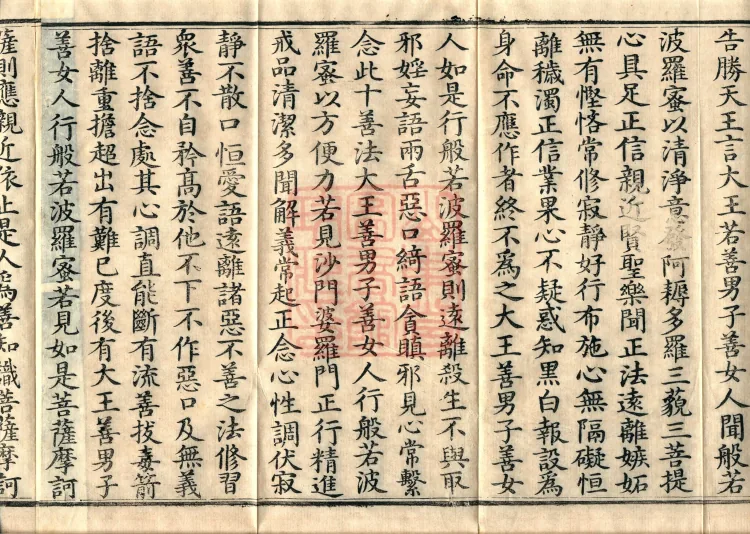 告勝天王言大王若善男子善女人聞般若
波羅蜜以清淨意發阿耨多羅三藐三菩提
心具足正信親近賢聖樂聞正法遠離嫉妬
無有慳悋常修寂靜好行布施心無隔礙恒
離穢濁正信業果心不疑惑知黑白報設為
身命不應作者終不為之大王善男子善女
人如是行般若波羅蜜則遠離殺生不與取
邪婬妄語兩舌惡口綺語貪瞋邪見心常繫
念此十善法大王善男子善女人行般若波
羅蜜以方便力若見沙門婆羅門正行精進
戒品清潔多聞解義常起正念心性調伏寂
靜不散口恒愛語遠離諸惡不善之法修習
衆善不自矜高於他不下不作惡口及無義
語不捨念處其心調直能斷有流善拔毒箭
捨離重擔超出有難已度後有大王善男子
善女人行般若波羅蜜若見如是菩薩摩訶
薩則應親近依止是人為善知識菩薩摩訶